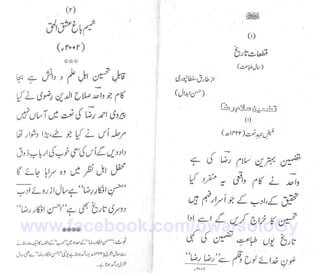 (۱)
قطعاتِ تاریخ
(سالِ طباعت)
از طارق سلطانپوری
(حسن ابدال)
تضمینِ سلامِ رضا
(۱)
فیضِ نعت (۱۴۲۲ھ)
تضمین بہترین سلامِ رضا کی ہے
واحد نے کام واقعی یہ منفرد کیا
تحقیق کے، ادب کے جو اسرار فہم ہیں
تحسین کا خراج کریں گے اسے ادا
تاریخ یوں طباعتِ تضمین کی کہی
عونِ خدائے لوح و قلم سے "رضا رضا"
(۲)
شمیمِ باغِ عشق الحق
(۲۰۰۲ء)
***
قابلِ تحسین اہلِ علم و دانش ہے بجا
کام جو واحد صلاح الدین رضوی نے کیا
پیروی احمد رضا کی نعت میں آساں نہیں
مرحلہ اُس نے کیا جو طے، بڑا دشوار تھا
داد دیں گے اُس کی سعیِ خوب کی اربابِ ذوق
محفلِ اہلِ نظر میں وہ سراہا جائے گا
"حسنِ افکارِ رضا" ہے سال از روئے ادب
دوسری تاریخ بھی ہے "حسنِ افکارِ رضا"
www.facebook.com/owaisoloGy